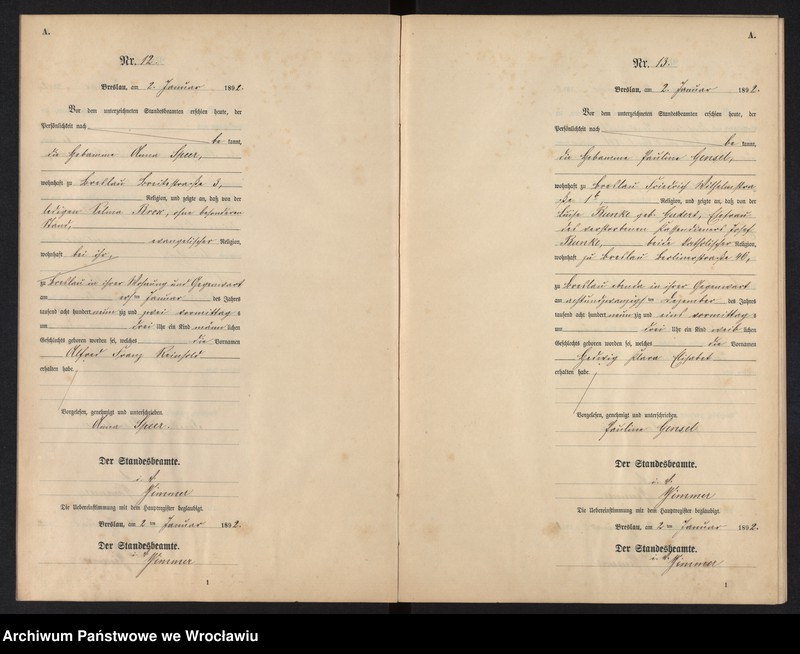 A.
Nr. 12.
Breslau, am 2. Januar 1892.
Vor dem unterzeichneten Standesbeamten erschien heute, der
Persönlichkeit nach
be kannt,
die Hebamme Anna Speer,
wohnhaft zu Breslau Breitestraße 3,
Religion, und zeigte an, daß von der
ledigen Selma, ohne besonderen
Stand,
evangelischer Religion,
wohnhaft bei ihr,
zu Breslau in ihrer Wohnung und Gegenwart
am ersten Januar des Jahres
tausend acht hundert neun zig und zwei vormittags
um drei Uhr ein Kind männ lichen
Geschlechts geboren worden sei, welches die Vornamen
Alfred Franz Reinhold
erhalten habe.
Vorgelesen, genehmigt und unterschrieben.
Anna Speer.
Der Standesbeamte.
i. V.
Die Uebereinstimmung mit dem Hauptregister beglaubigt.
Breslau, am 2ten Januar 1892.
Der Standesbeamte.
i. V.
1
A.
Nr. 13.
Breslau, am 2. Januar 1892.
Vor dem unterzeichneten Standesbeamten erschien heute, der
Persönlichkeit nach
be kannt,
die Hebamme Pauline Gensel,
wohnhaft zu Breslau Friedrich Wilhelmstra-
ße 1b Religion, und zeigte an, daß von der
Luise Runke geb., Ehefrau
des verstorbenen Josef
Runke, beide katholischer Religion,
wohnhaft zu Breslau Berlinerstraße 46,
zu Breslau ebenda in ihrer Gegenwart
am einunddreißigsten Dezember des Jahres
tausend acht hundert neun zig und eins vormittags
um drei Uhr ein Kind weib lichen
Geschlechts geboren worden sei, welches die Vornamen
Hedwig Klara Elisabet
erhalten habe.
Vorgelesen, genehmigt und unterschrieben.
Pauline Gensel
Der Standesbeamte.
i. V.
Die Uebereinstimmung mit dem Hauptregister beglaubigt.
Breslau, am 2ten Januar 1892.
Der Standesbeamte.
i. V.
1
Archiwum Państwowe we Wrocławiu